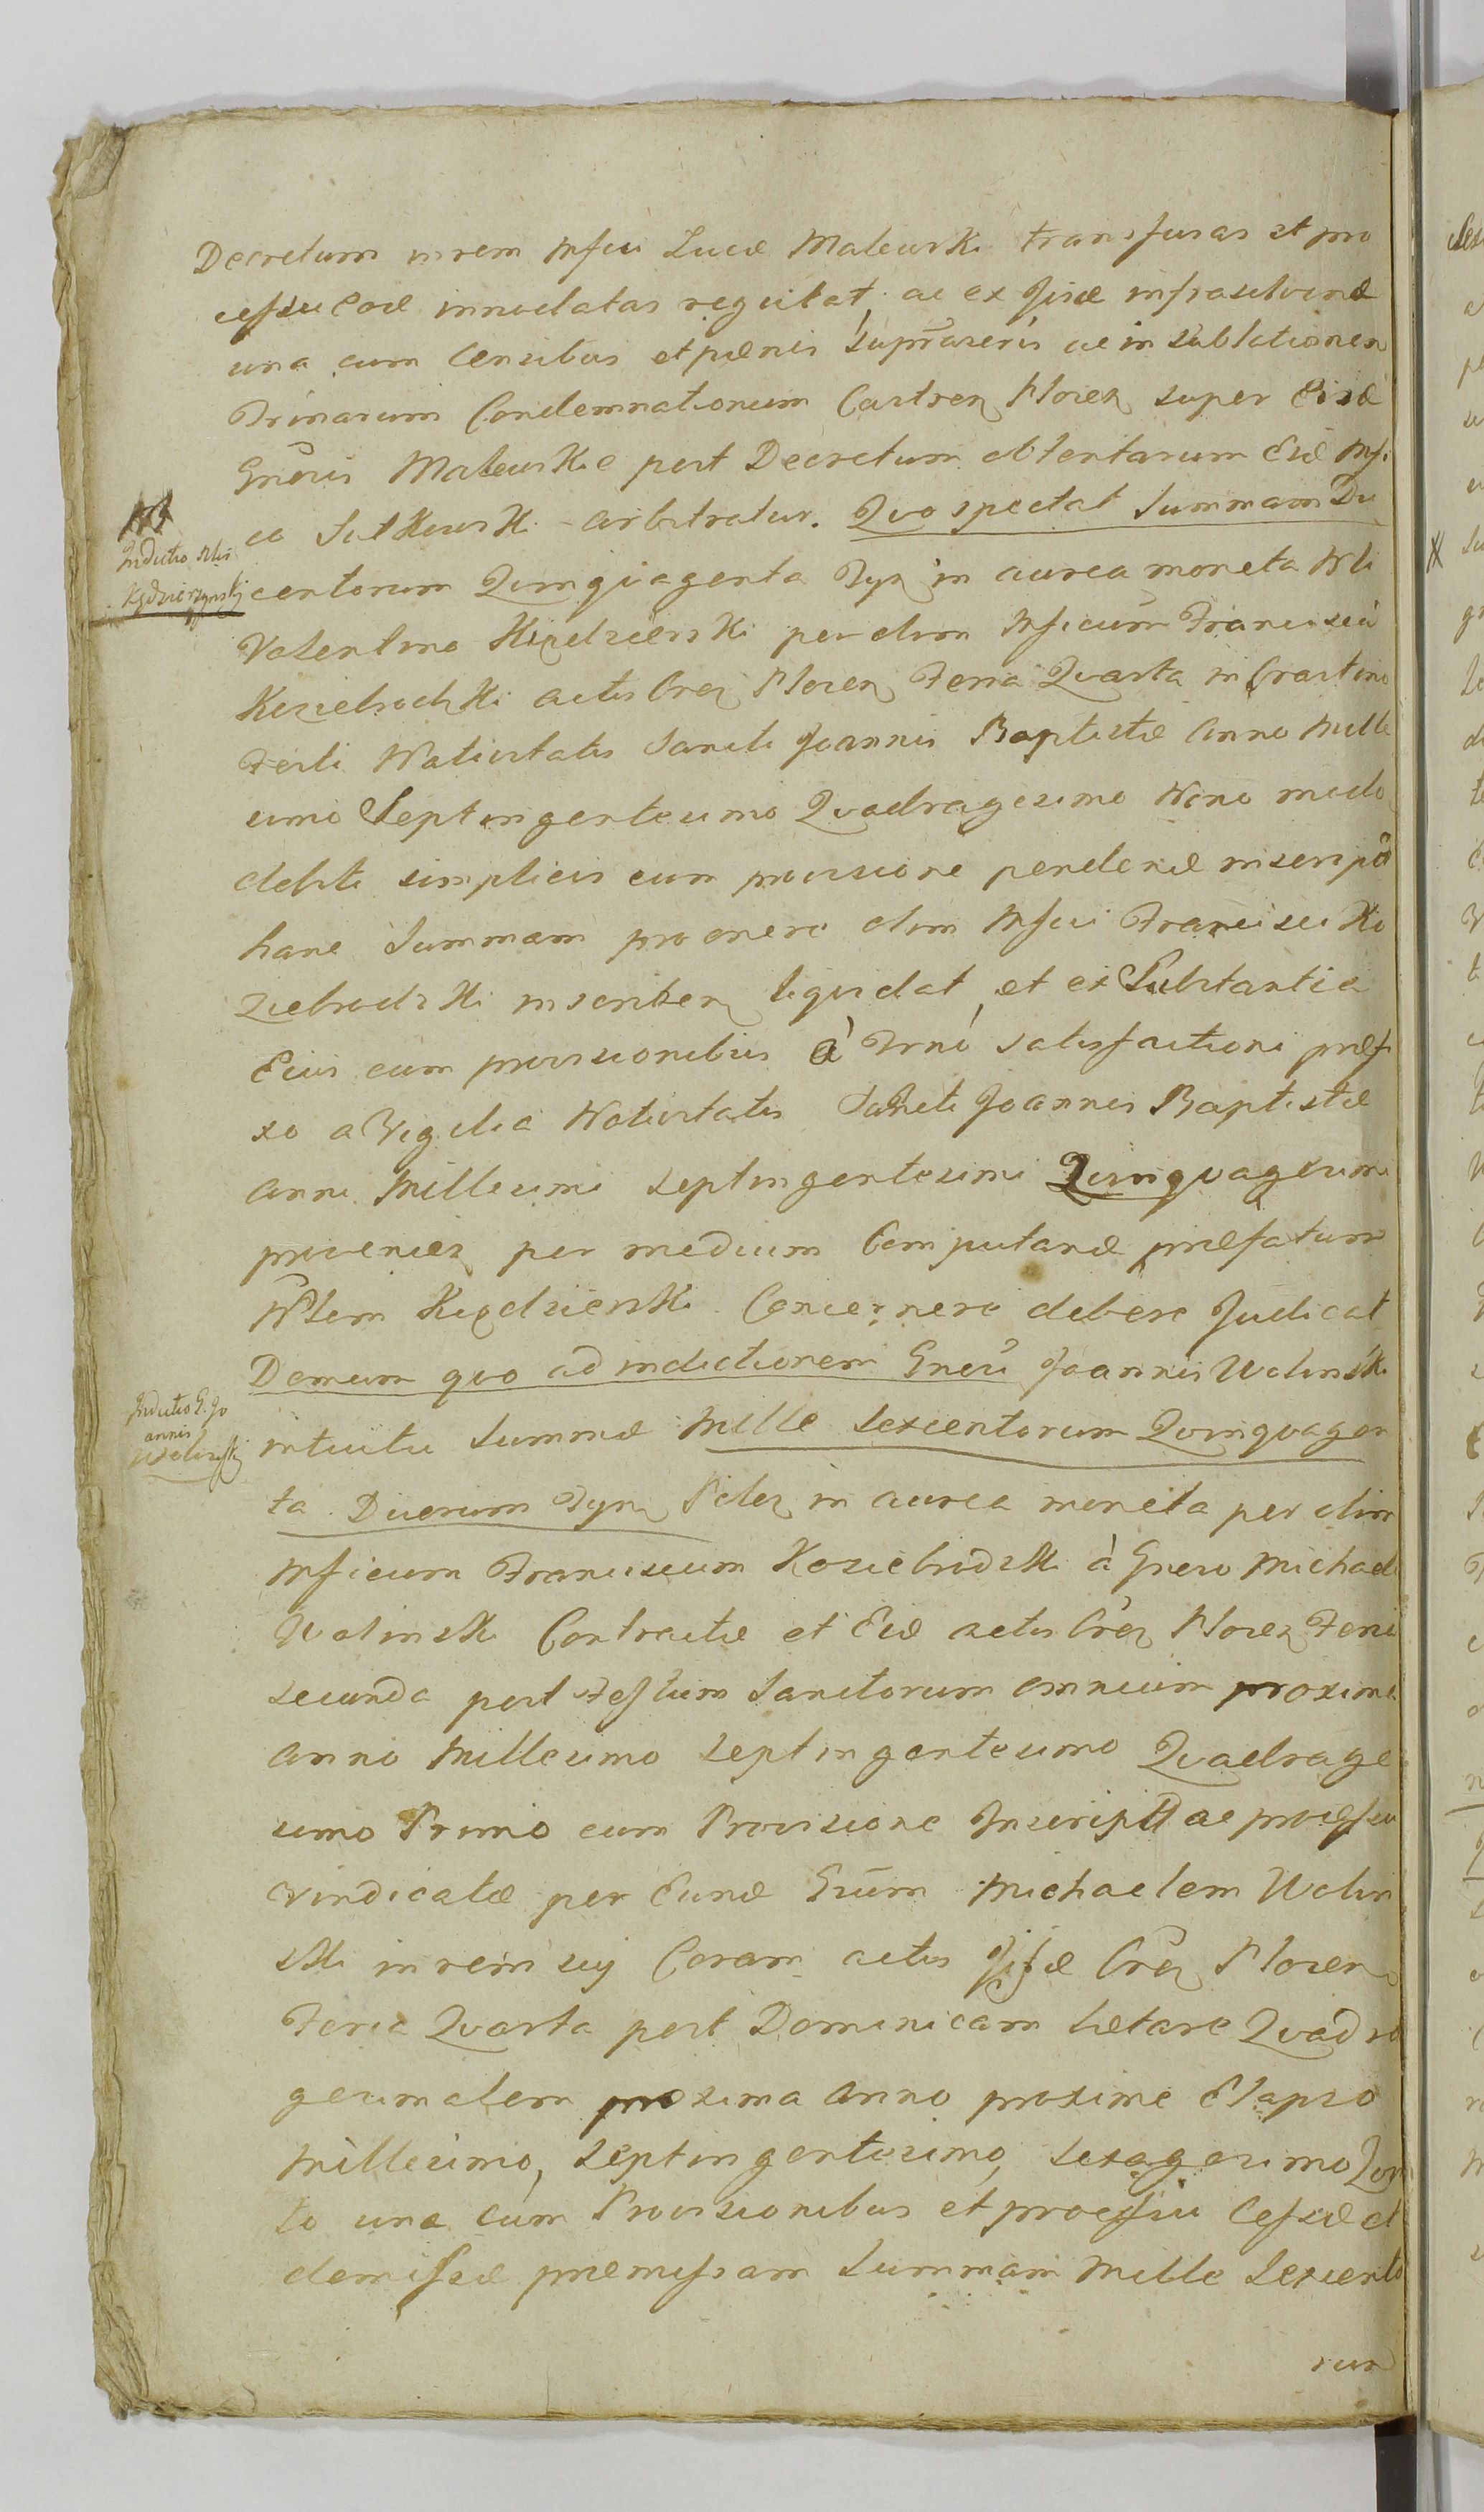 Decretum in rem Mfici Lucæ Malewski transfusas et pro
cessu Eod innodatas reguitat, ac ex
una cum Censibus et pænis Supraseris ac in Sublationem
Trinarum Condemnationum Castren Plocen super Eisd
Gnosis Malewskie post Decretum obtentarum Eid Mfi
co Sutkowski arbitratur. Quo spectat Summam Du
Indictio Mli
Kędzierzynskj
centorum Quinquagenta Tyn in aurea moneta Mli
Valentino Kiędzierski per olim Mficum Franciscũ
Koziebrodzki actis Cren Plocen Feria Quarta in Crastino
Festi Nativitatis Sancti Joannis Baptistæ Anno Mille
simo Septingentesimo Quadragesimo Nono modo
debiti simplicis cum provisione pendend inscrip
hanc Summam pro onere olim Mfici Francisci Ko
ziebrodzki inscriben liquidat, et ex Substantia
Eius cum provisionibus à Trno satisfactioni præfi
xo a Vigilia Nativitatis Sancti Joannis Baptistæ
Anni Millesimi Septingentesimi Quinquagesimi
provenien per medium Computand præfatum
Mlem Kiędzierski Concernere debere Judicat
Demum quo ad indictionem Gnesi Joannis Wolinski
Indictio G. Jo
annis
Wolinskj
intuitu Summæ Mille Sexcentorum Quinquagen
ta Duorum Tyn Pclen in aurea moneta per olim
Mficum Franciscum Koziebrodzki à Gneso Michaele
Wolinski Contractæ et Eid actis Cren Plocen Feria
secunda post Festum Sanctorum Omnium proxima
Anno Millesimo Septingentesimo Quadrage
simo Primo cum Provisione Inscriptæ ac processu
vindicatæ per Eund Gsum Michaelem Wolin
ski in rem sui Coram actis Cren Plocen
Feria Quarta post Dominicam Lætare Quadra
gesimalem proxima Anno proxime Elapso
Millesimo, Septingentesimo, Sexagesimo Quar
to una cum Provisionibus et processu Cessæ et
demissæ præmissam Summam Mille Sexcento
rum